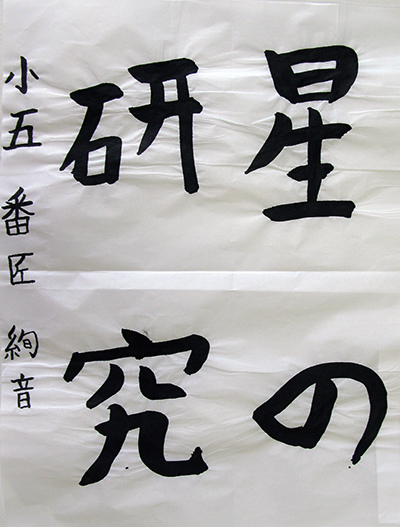 星の
研究
小五 番匠 絢音